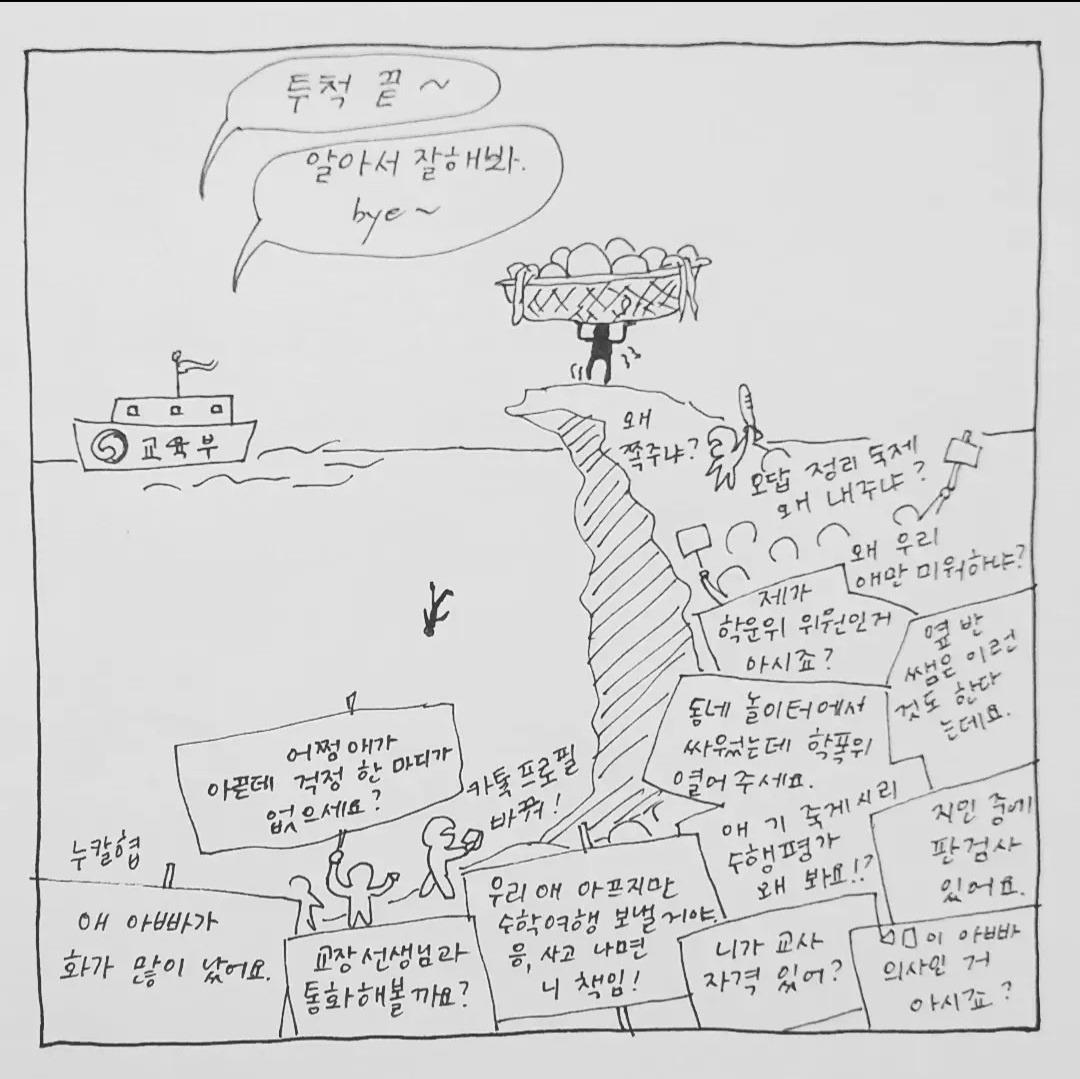 투척 끝~
알아서 잘해봐.
bye~
교육부
왜
쪽주냐?
오답 정리 숙제
왜 내주냐?
왜 우리
애만 미워하냐?
제가
학운위 위원인거
아시죠?
옆반
쌤은 이런
것도 한다
는데요.
동네 놀이터에서
싸웠는데 학폭위
열어 주세요.
어쩜 애가
아픈데 걱정 한 마디가
없으세요?
카톡프로필
바꿔!
애 기 죽게시리
수행평가
왜 봐요!?
지인 중에
판검사
있어요.
누칼협
애 아빠가
화가 많이 났어요.
교장선생님과
통화해볼까요?
우리애 아프지만
수학여행 보낼거야.
응, 사고 나면
니 책임!
니가 교사
자격 있어?
□□이 아빠
의사인 거
아시죠?